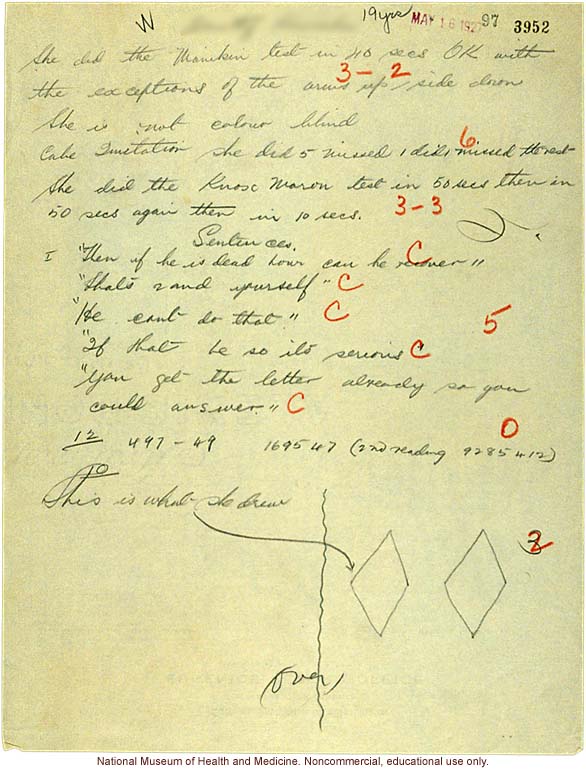 W 19yrs MAY 16 192 97 3952
She did the Manikin test in 40 secs OK with
the exceptions of the arms up/side down
3-2
She is not colour blind
Cube Imitation she did 5 missed 1 did 1 missed the rest
6
She did the Knox Moron test in 50 secs then in
50 secs again then in 10 secs. 3-3
Sentences.
I "Then if he is dead how can he recover" C
"that's 2 and yourself" C
"He cant do that" C
5
"If that be so its serious" C
"You get the letter already so you
could answer" C
0
12 497-49 169547 (2nd reading 9285412)
10
This is what she drew
2
(over)
National Museum of Health and Medicine. Noncommercial, educational use only.